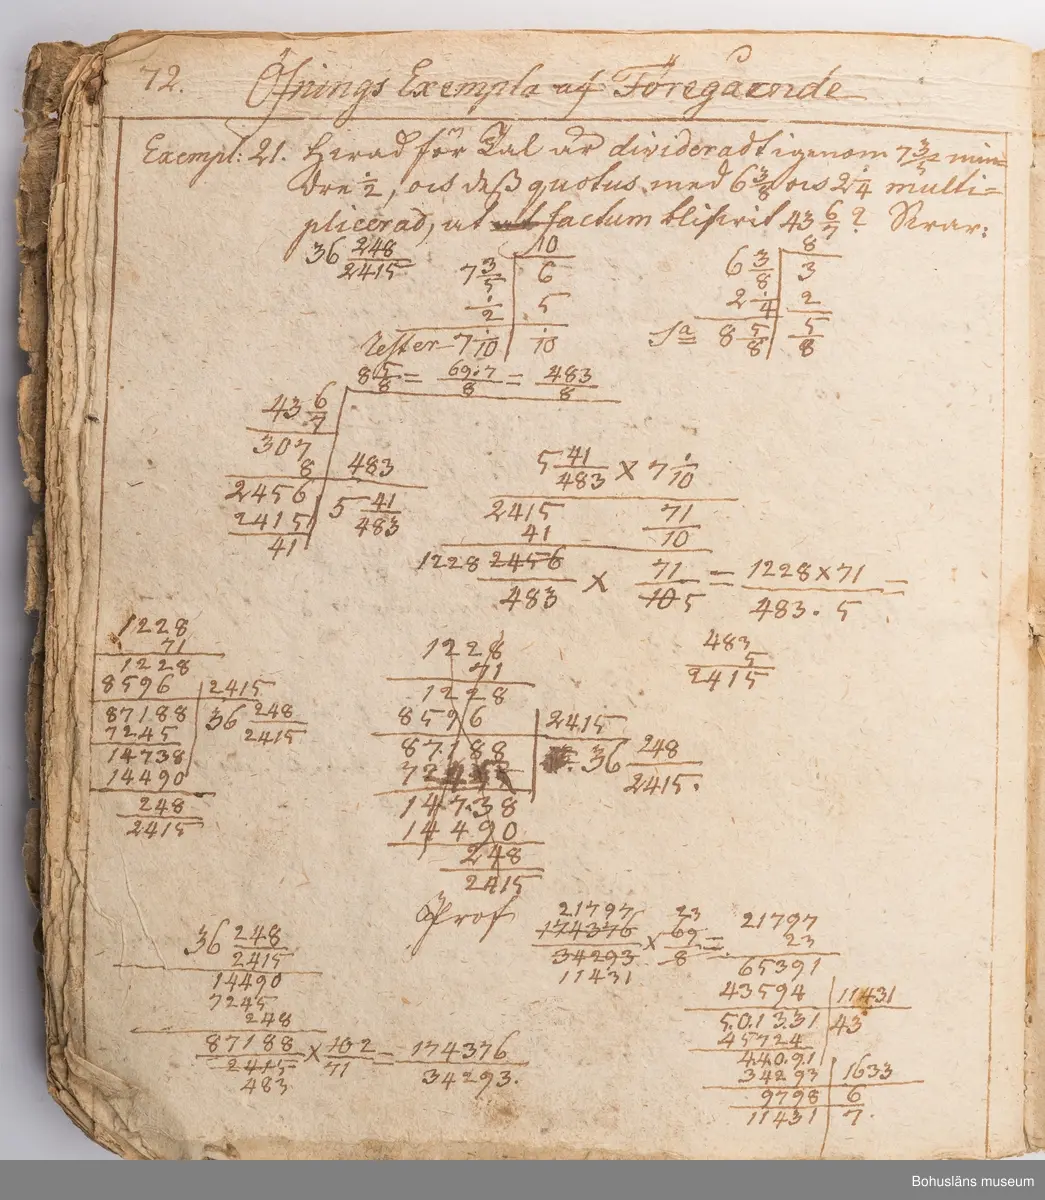 72. Öfnings Exempla af Föregående
Exempl: 21. Hvad för Tal är divideradt igenom 7 3/5 min=
dre 1/2, ocs deß quotus med 6 3/8 ocs 2 1/4 multi=
plicerad, at factum blifvit 43 6/7? Svar:
36 248/2415
10
7 3/5 | 6
1/2 | 5
Rester 7 1/10 | 1/10
8
6 3/8 | 3
2 1/4 | 2
Sa 8 5/8 | 5/8
8 5/8 = 69.7/8 = 483/8
43 6/7
307
8 | 483
2456 | 5 41/483
2415
41
5 41/483 × 7 1/10
2415 71
41 10
1228 2456/483 × 71/10 5 = 1228×71/483. 5 =
483
5
2415
1228
71
1228
8596 | 2415
87188 | 36 248/2415
7245
14738
14490
248
2415
1228
71
1228
8596 | 2415
87188 | 36 248/2415.
7245
14738
14490
248
2415
Prof
36 248/2415
14490
7245
248
87188/2415 × 10 2/71 = 174376/34293.
483
21797 23
174376/34293 × 69/8 =
11431
21797
23
65391
43594 | 11431
501331 | 43
45724
44091
34293 | 1633
9798 | 6
11431 | 7.
Bohusläns museum